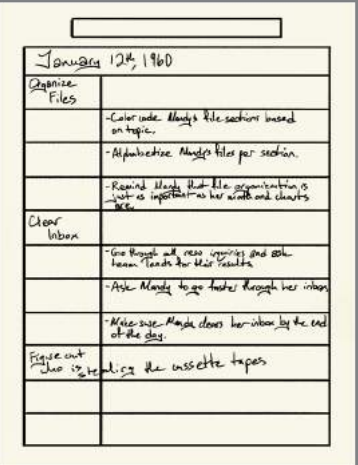 January 12th, 1960
Organize
Files
- Color code Mandy's file sections based
on topic.
- Alphabetize Mandy's files per section.
- Remind Mandy that file organization is
just as important as her math and charts
are.
Clear
Inbox
- Go through all new inquiries and ask
team for their results
- Ask Mandy to go faster through her inbox
- Make sure Mandy clears her inbox by the end
of the day.
Figure out
who is stealing the cassette tapes